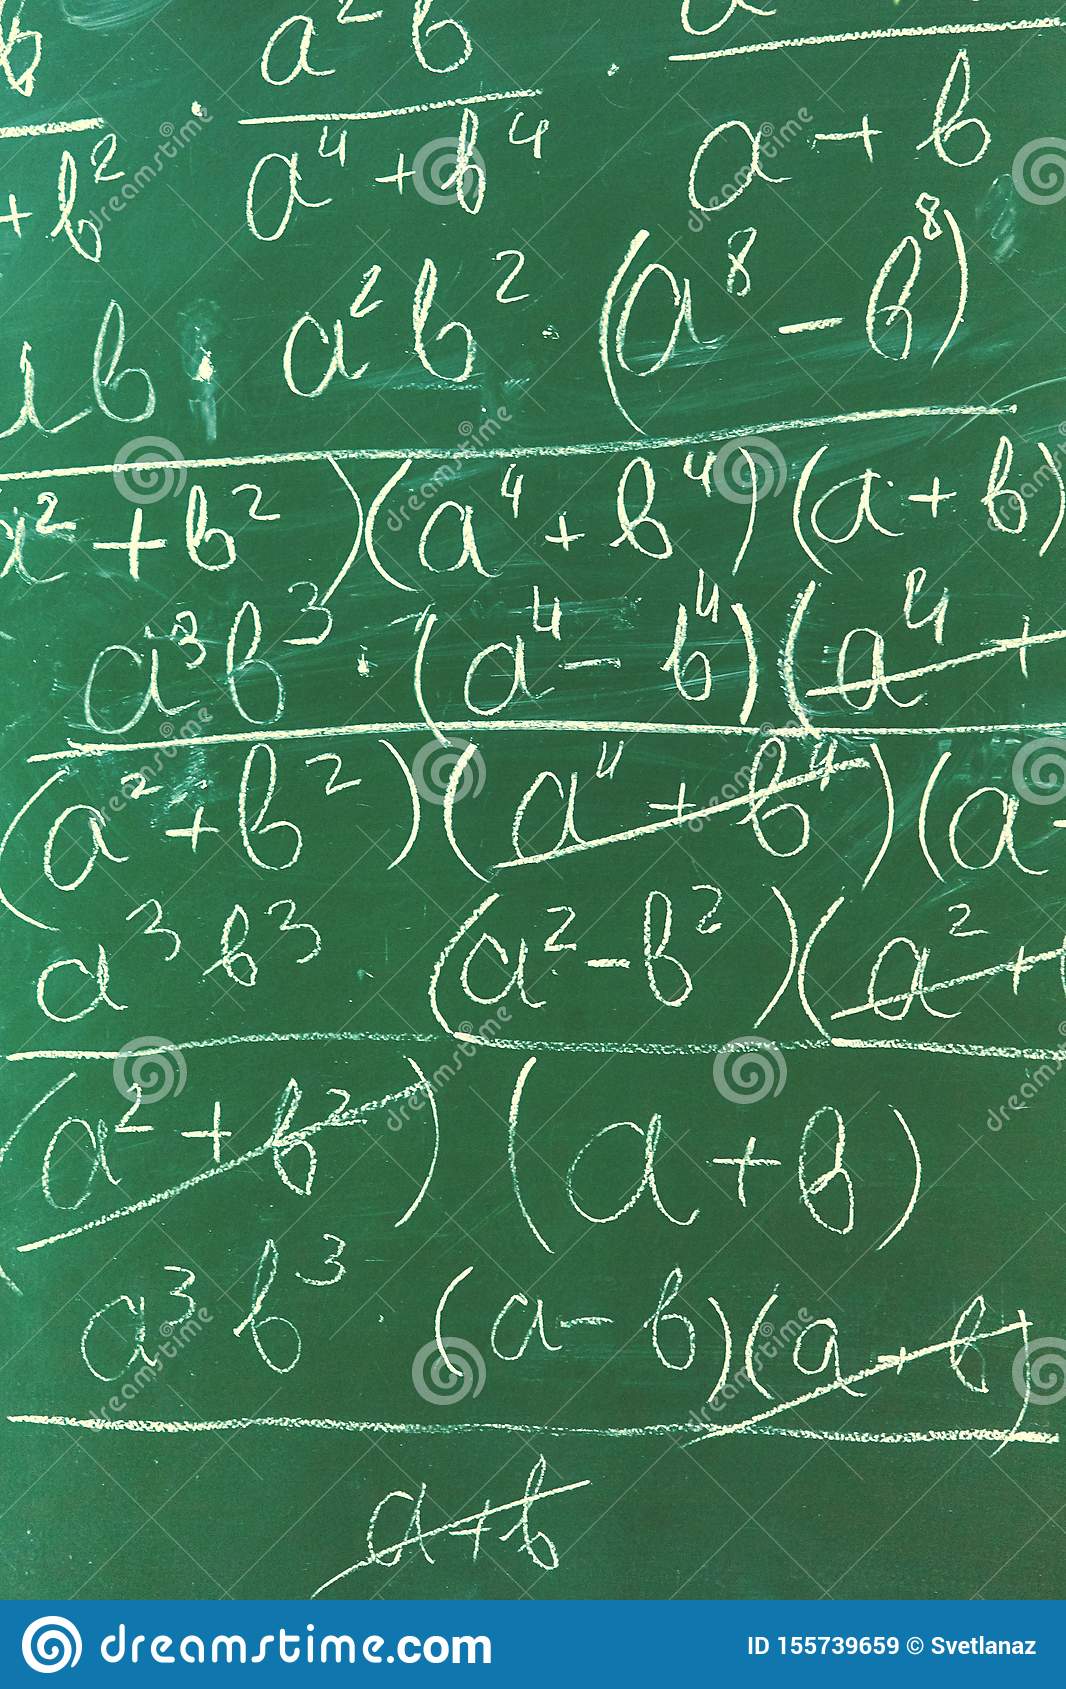 b a² b a
+ b² · a⁴ + b⁴ · a + b
b · a² b² · (a⁸ - b⁸)
a² + b²)(a⁴ + b⁴)(a + b)
a³b³ · (a⁴ - b⁴)(a⁴ +
(a² + b²)(a⁴ + b⁴)(a
a³b³ (a² - b²)(a² +
(a² + b²)(a + b)
a³b³ · (a - b)(a + b)
a + b
dreamstime.com ID 155739659 © Svetlanaz